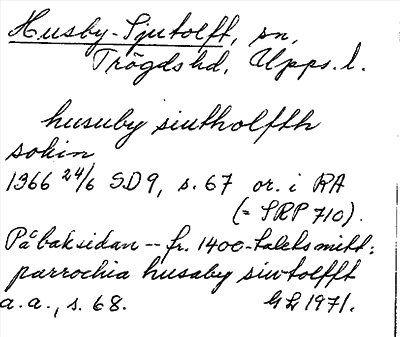 Husby-Sjutolft, sn,
Trögds hd, Upps. l.
husuby siutholffth
sokin
1366 24/6 SD 9, s. 67 or. i RA
(= SRP 710).
På baksidan -- fr. 1400-talets mitt:
parrochia husaby siwtolfft
a. a., s. 68. GL 1971.